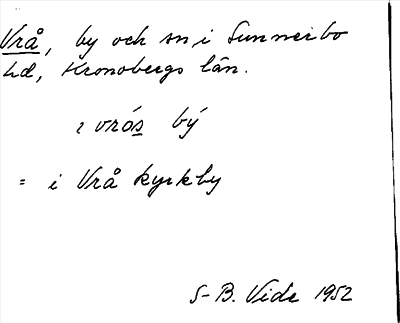 Vrå, by och sn, i Sunnerbo
hd, Kronobergs län.
ɩ vrós bý
= i Vrå kyrkby
S-B. Vide 1952